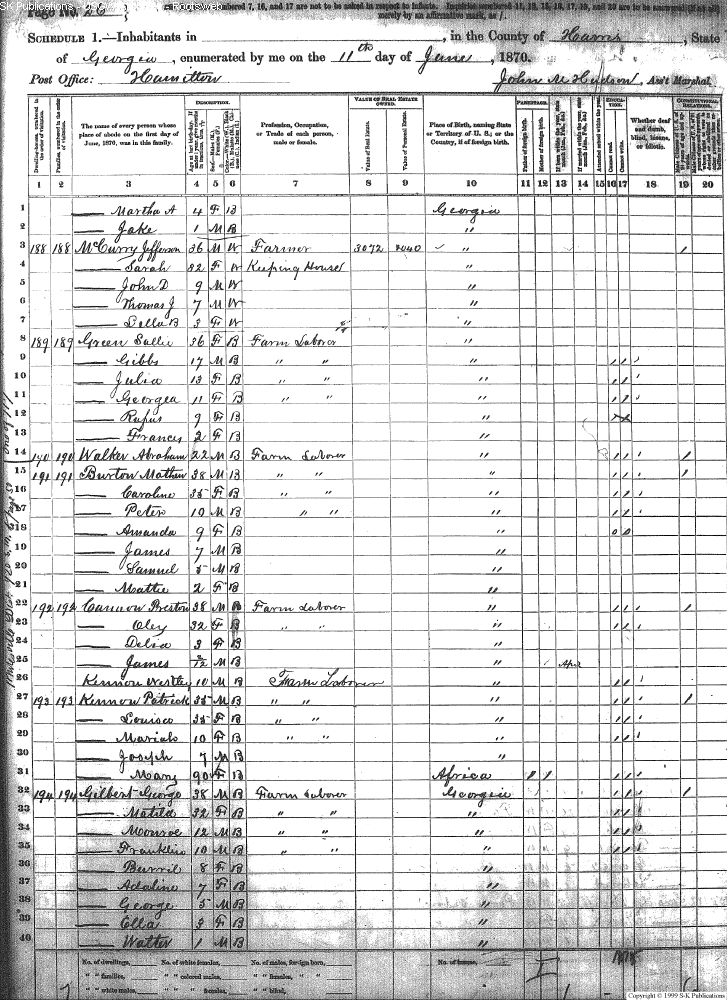 SK Publications - USGenWeb - Rootsweb
Page No. 26
numbered 7, 16, and 17 are not to be asked in respect to infants. Inquiries numbered 11, 12, 15, 16, 17, 19, and 20 are to be answered (if at all)
merely by an affirmative mark, as /.
SCHEDULE 1.—Inhabitants in , in the County of Harris, State
of Georgia, enumerated by me on the 11th day of June, 1870.
Post Office: Hamilton
John M Hudson, Ass't Marshal.
Dwelling-houses, numbered in the order of visitation.
Families, numbered in the order of visitation.
The name of every person whose place of abode on the first day of June, 1870, was in this family.
DESCRIPTION.
Profession, Occupation, or Trade of each person, male or female.
VALUE OF REAL ESTATE OWNED.
Value of Real Estate.
Value of Personal Estate.
Place of Birth, naming State or Territory of U. S.; or the Country, if of foreign birth.
PARENTAGE.
Father of foreign birth.
Mother of foreign birth.
EDUCATION.
Cannot read.
Cannot write.
Whether deaf and dumb, blind, insane, or idiotic.
CONSTITUTIONAL RELATIONS.
1 2 3 4 5 6 7 8 9 10 11 12 13 14 15 16 17 18 19 20
1 —— Martha A 4 F B Georgia
2 —— Jake 1 M B "
3 188 188 McCurry Jefferson 36 M W Farmer 3072 2040 " /
4 —— Sarah 32 F W Keeping House "
5 —— John D 9 M W "
6 —— Thomas J 7 M W "
7 —— Della B 3 F W "
8 189 189 Green Sallie 36 F B Farm Laborer "
9 —— Gibbs 17 M B " " " / /
10 —— Julia 13 F B " " " / /
11 —— Georgea 11 F B " " " / /
12 —— Rufus 9 B "
13 —— Frances 2 F B "
14 190 190 Walker Abraham 22 M B Farm Laborer " / / /
15 191 191 Burton Mathew 38 M B " " " / / /
16 —— Caroline 35 F B " " " / /
17 —— Peter 10 M B " " " / /
18 —— Amanda 9 F B " 0 0
19 —— James 7 M B "
20 —— Samuel 5 M B "
21 —— Mattie 2 F B "
22 192 192 Cannon Preston 38 M B Farm Laborer " / / /
23 —— Oley 32 F B " " " / /
24 —— Delia 3 F B "
25 —— James 2/12 M B " Apr
26 Kennon Westley 10 M B Farm Laborer " / /
27 193 193 Kennon Patrick 35 M B " " " / / /
28 —— Louisa 35 F B " " " / /
29 —— Mariah 10 F B " " " / /
30 —— Joseph 7 M B "
31 —— Mary 90 F B Africa / / / /
32 194 194 Gilbert George 38 M B Farm Laborer Georgia / / /
33 —— Matilda 32 F B " " " / /
34 —— Monroe 12 M B " " " / /
35 —— Franklin 10 M B " " " / /
36 —— Burril 8 F B "
37 —— Adaline 7 F B "
38 —— George 5 M B "
39 —— Ella 3 F B "
40 —— Walter 1 M B "
No. of dwellings, No. of white females, No. of males, foreign born, No. of insane,
" " families, " " colored males, " " females,
" " white males, " " females, " " blind,
Copyright © 1999 S-K Publications